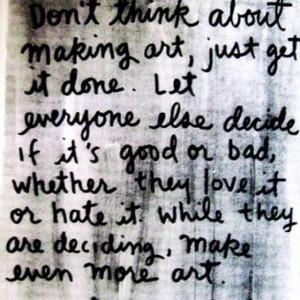 Don't think about
making art, just get
it done. Let
everyone else decide
if it's good or bad,
whether they love it
or hate it. While they
are deciding, make
even more art.